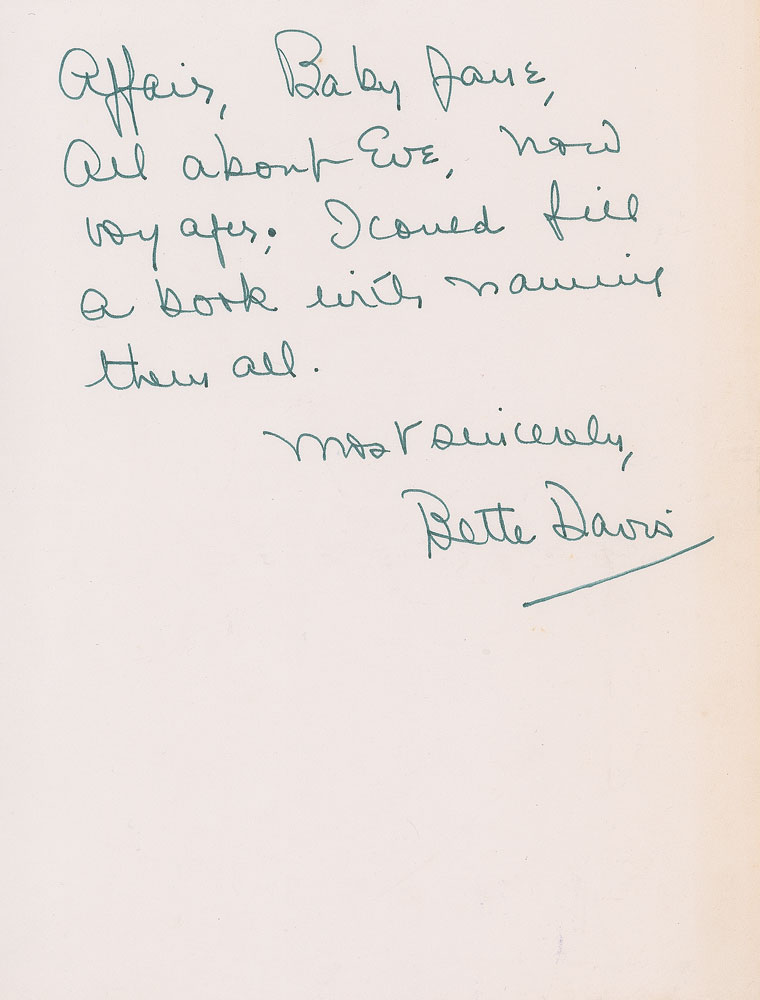 Affair, Baby Jane,
All about Eve, Now
Voyager; I could fill
a book with naming
them all.
Most sincerely,
Bette Davis